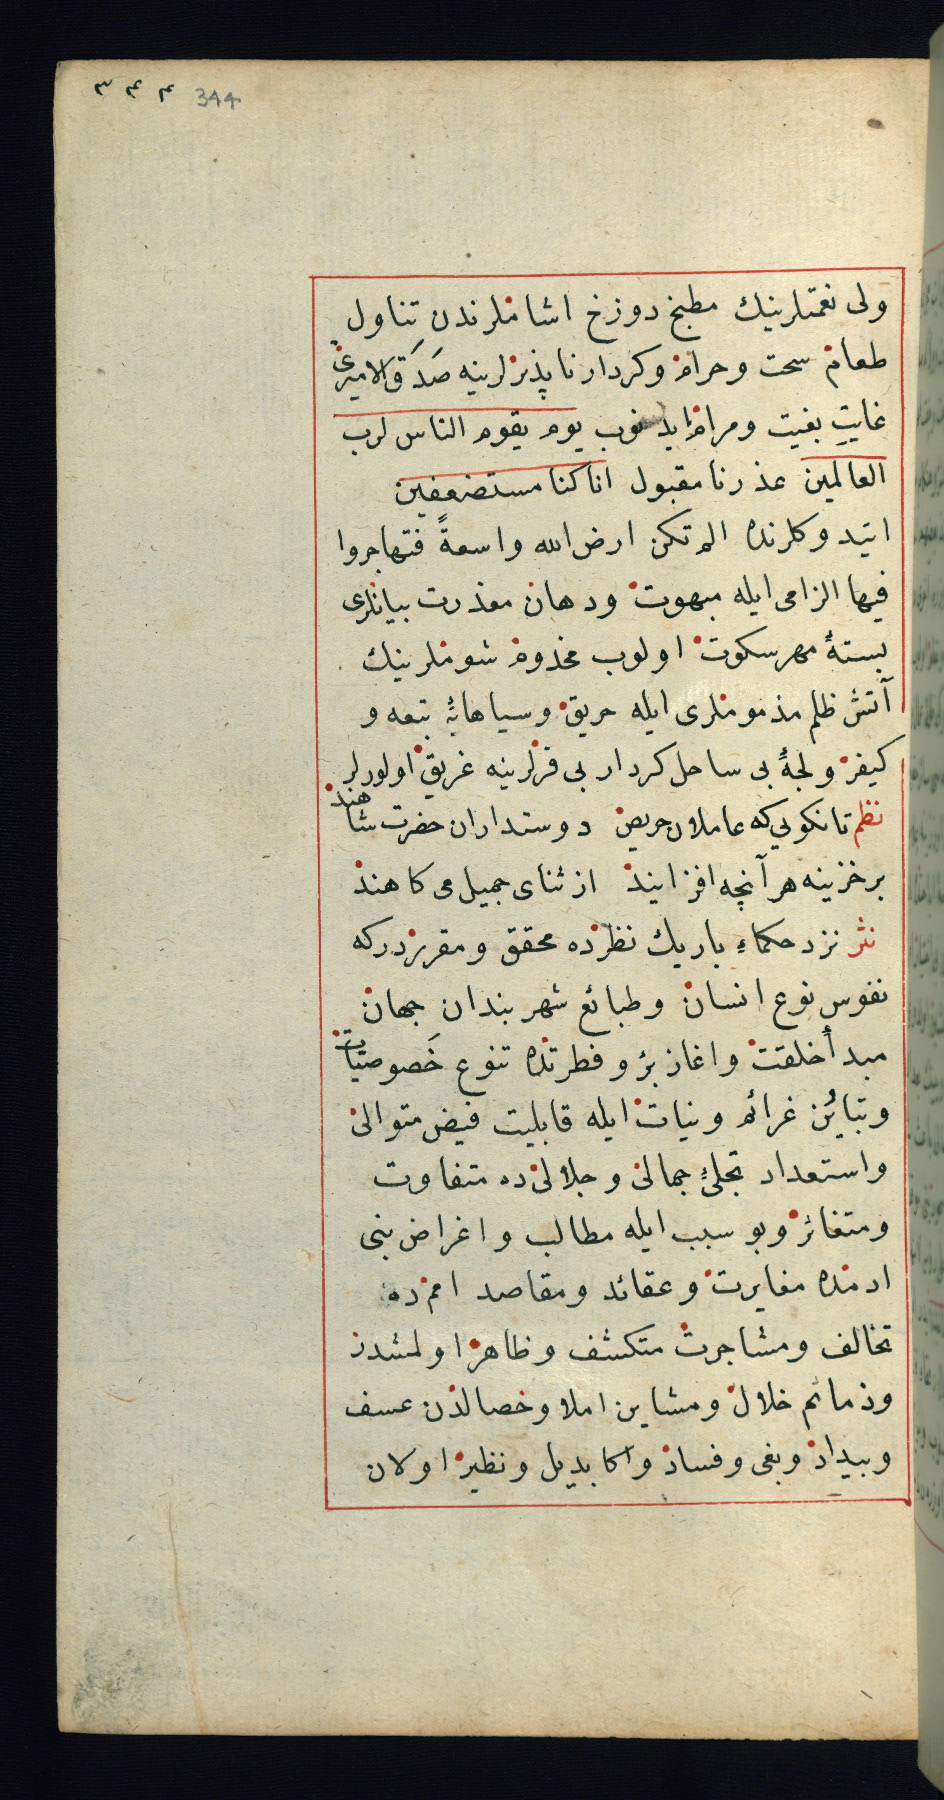 ۳۴۴ 344
ولی نعمتلرینك مطبخ دوزخ اشاملرندن تناول
طعام سحت وحرام وكردار ناپذیرلرینه صَدَقَ الامیری
غایتِ بغیت ومرام ایدنوب یوم یقوم الناس لرب
العالمین عذر نامقبول اناكنا مستضعفین
ایتدوكلرنده الم تكن ارض الله واسعةً فتهاجروا
فیها الزامی ایله مبهوت ودهان معذرت بیانلری
بستهٔ مهر سكوت اولوب مخدوم شوملرینك
آتش ظلم مذموملری ایله حریق وسیاهابهٔ تبعه و
كیفر ولجهٔ بی ساحل كردار بی فرلرینه غریق اولورلر
نظم تا نكویی كه عاملان حریص دوستداران حضرت شاهند
بر خزینه هر آنچه افزایند از ثنای جمیل می كاهند
نثر نزد حكماءِ باریك نظرده محقق ومقرردركه
نفوس نوع انسان وطبائع شهر بندان جهان
مبدأ خلقت واغاز برٔ وفطرتده تنوع خَصوصیّات
وتبایُن غرائم ونیات ایله قابلیت فیض متوالی
واستعداد تجلیٔ جمالی وجلالی ده متفاوت
ومتغائر وبو سبب ایله مطالب واغراض بنی
ادمده مغایرت وعقائد ومقاصد اممده
تخالف ومشاجرت متكشف وظاهر اولمشدر
وذمائم خلال ومشاین املا وخصالدن عسف
وبیداد وبغی وفساد واكا بدیل ونظیر اولان